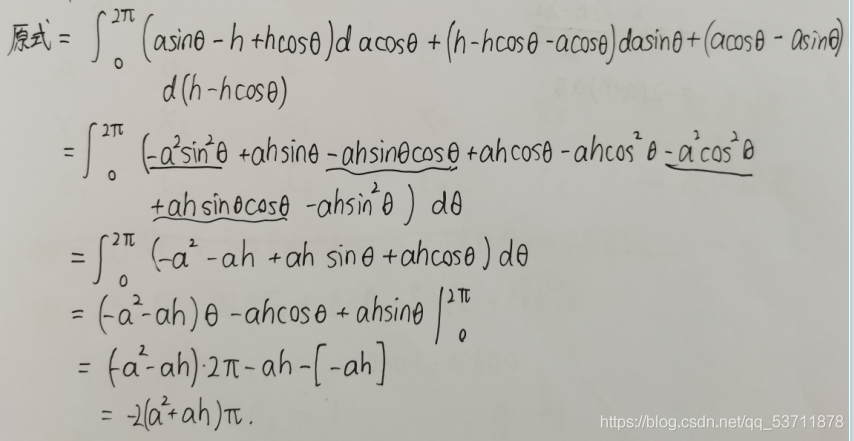 原式 = ∫₀^2π (asinθ - h + hcosθ)d acosθ + (h-hcosθ-acosθ)dasinθ + (acosθ - asinθ)
d(h-hcosθ)
= ∫₀^2π (-a²sin²θ + ahsinθ - ahsinθcosθ + ahcosθ - ahcos²θ - a²cos²θ
+ ahsinθcosθ - ahsin²θ ) dθ
= ∫₀^2π (-a² - ah + ah sinθ + ahcosθ) dθ
= (-a²-ah)θ - ahcosθ + ahsinθ |₀^2π
= (-a²-ah)·2π - ah - [-ah]
= -2(a²+ah)π.
https://blog.csdn.net/qq_53711878